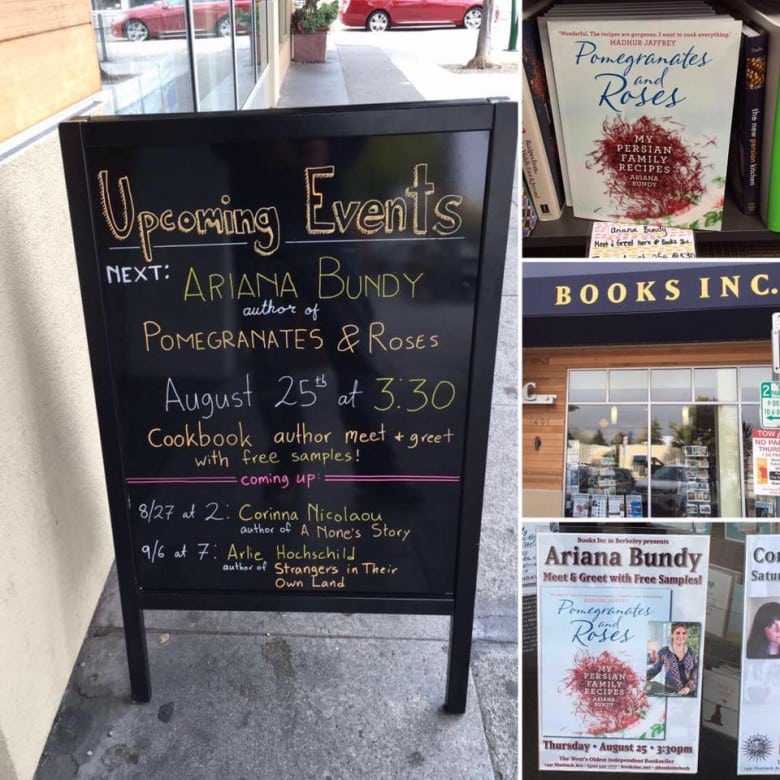 Upcoming Events
NEXT: ARIANA BUNDY
author of
POMEGRANATES & ROSES
August 25th at 3:30
Cookbook author meet + greet
with free samples!
coming up:
8/27 at 2: Corinna Nicolaou
author of A None's Story
9/6 at 7: Arlie Hochschild
author of Strangers in Their
Own Land
"Wonderful. The recipes are gorgeous. I want to cook everything."
MADHUR JAFFREY
Pomegranates
and
Roses
MY
PERSIAN
FAMILY
RECIPES
ARIANA
BUNDY
the new persian kitchen
Ariana Bundy
Meet & Greet here @ Books Inc.
BOOKS INC.
C.
1491
2
TOW
NO PA
THURS
Books Inc in Berkeley presents
Ariana Bundy
Meet & Greet with Free Samples!
Pomegranates
and
Roses
MY
PERSIAN
FAMILY
RECIPES
ARIANA
BUNDY
Thursday • August 25 • 3:30pm
The West's Oldest Independent Bookseller
Co
Satur